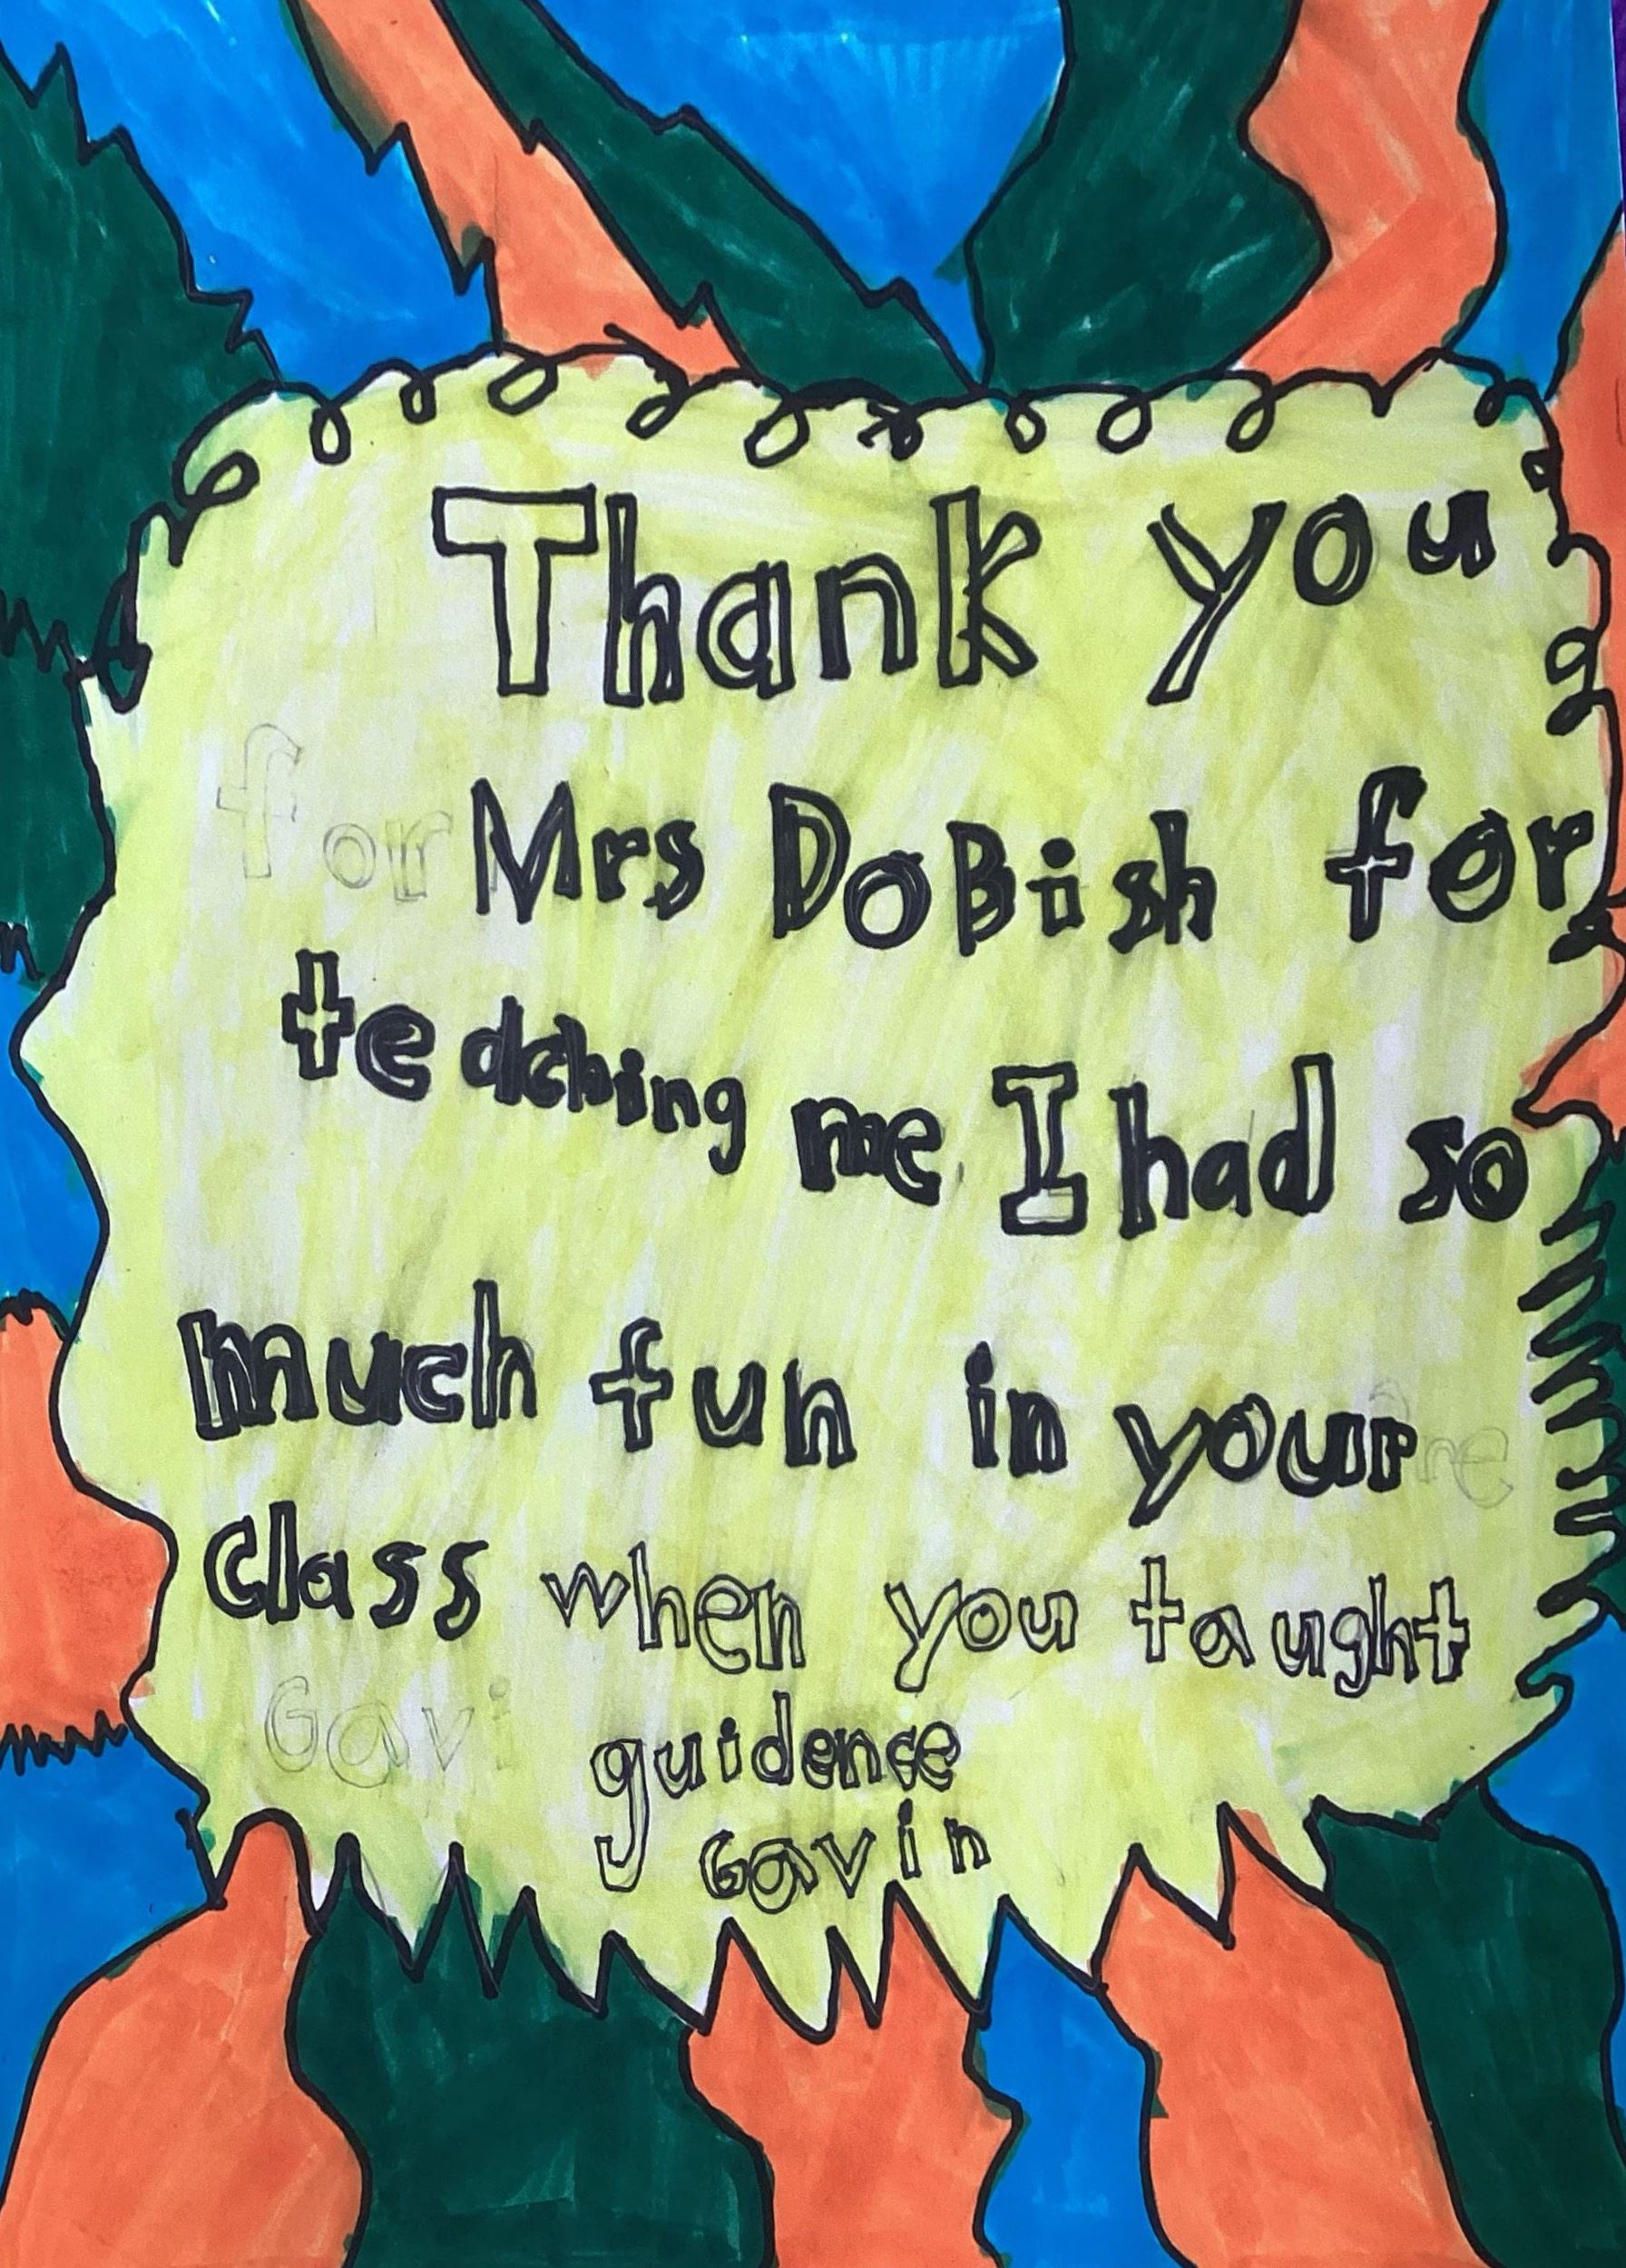 Thank you
for Mrs DoBish for
teaching me I had so
much fun in your
class when you taught
Gavi guidence
Gavin